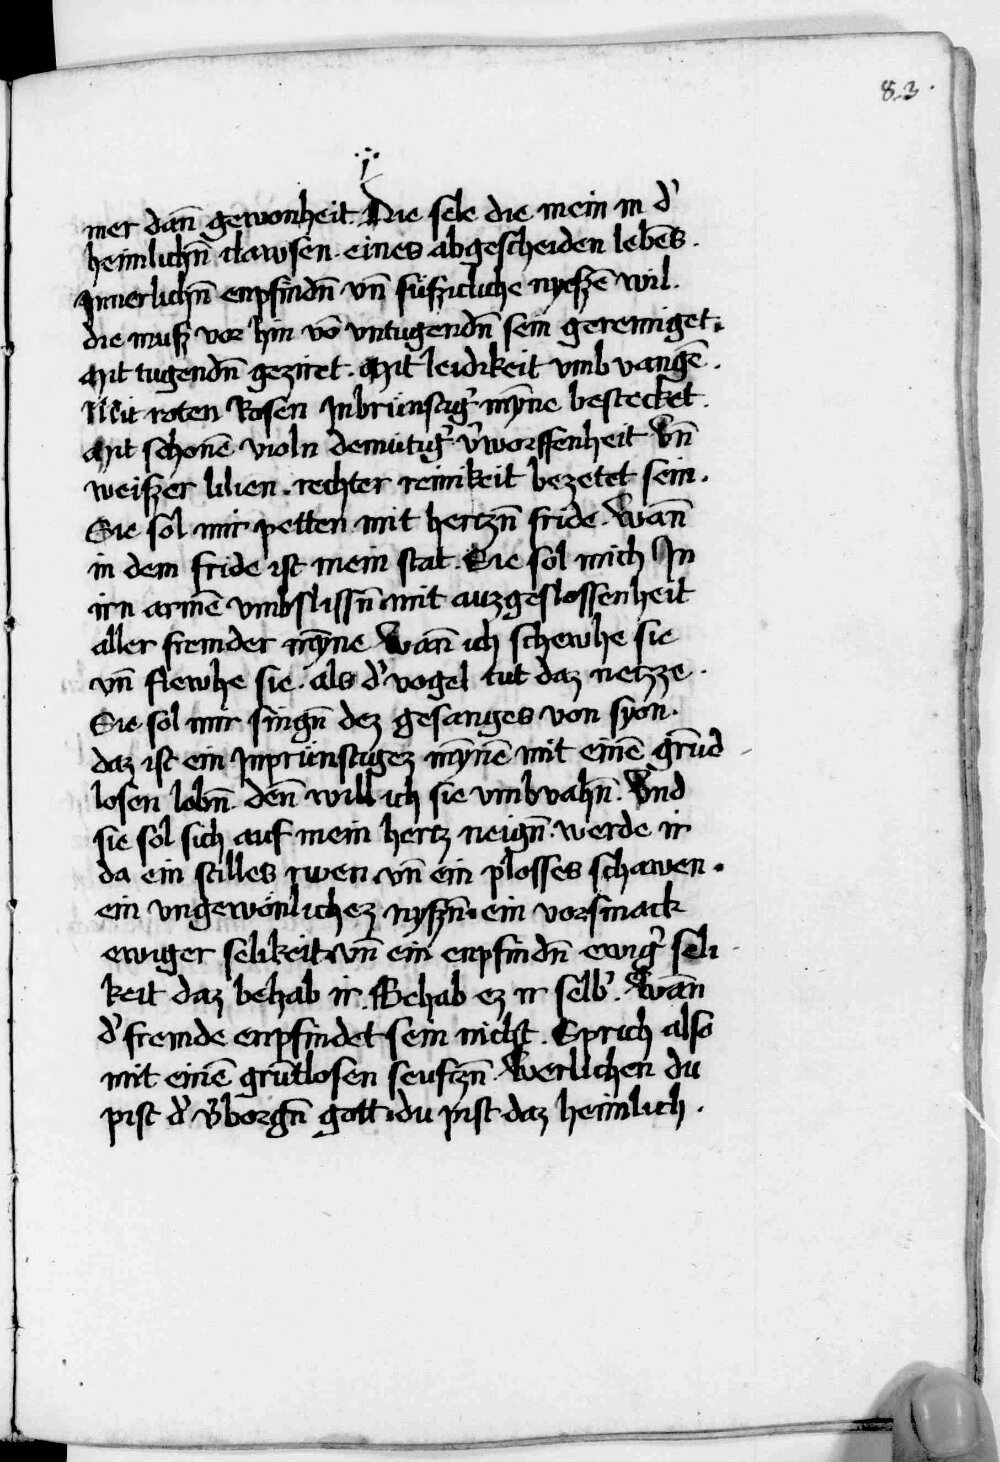 83.
mer dan̄ gewonheit. Die sele die mein in d'
heimlichn̄ clawsen. eines abgescheiden lebēs.
Innerlichn̄ enpfindn̄ vn̄ süsziclich nyeszē wil.
die musz vor hin vō vntugendn̄ sein gereiniget.
Mit tugendn̄ geziret. Mit leidikeit vmb vangē.
Mit roten Rosen Inbrünstig' mȳne bestecket.
Mit schonē violn demütig' v'worffenheit Vn̄
weiszer lilien. rechter reinikeit bezetet sein.
Sie sol mir petten mit hertzn̄ fride. Wan̄
in dem fride ist mein stat. Sie sol mich In
irn armē vmbslissn̄ mit auzgeslossenheit
aller fremder mȳne Wan̄ ich schewhe sie
vn̄ flewhe sie. als d' vogel tut daz netzze.
Sie sol mir singn̄ dez gesanges von syon.
daz ist ein Inprünstigez mȳnē mit einē grūd
losen lobn̄. den̄ will ich sie vmbvahn̄. Vnd
sie sol sich auf mein hertz neign̄. werde ir
da ein stilles rwen vn̄ ein plosses schawen.
ein vngewönlichez nyszn̄. ein vorsmack
ewiger selikeit vn̄ ein enpfindn̄ ewig' seli
keit daz behab ir. Behab ez ir selb'. Wan̄
d' fremde enpfindet sein nicht. Sprich also
mit einē grūtlosen seufczn̄. Werlichen du
pist d' v'borgn̄ gott. du pist daz heimlich.